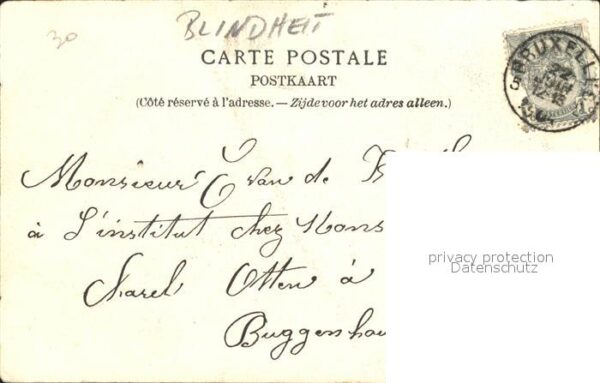 30
BLINDHEIT
CARTE POSTALE
POSTKAART
(Côté réservé à l'adresse. — Zijde voor het adres alleen.)
BRUXELLES
Monsieur C van de
à L'institut chez Mons
Karel Otten à
Buggenhou
privacy protection
Datenschutz